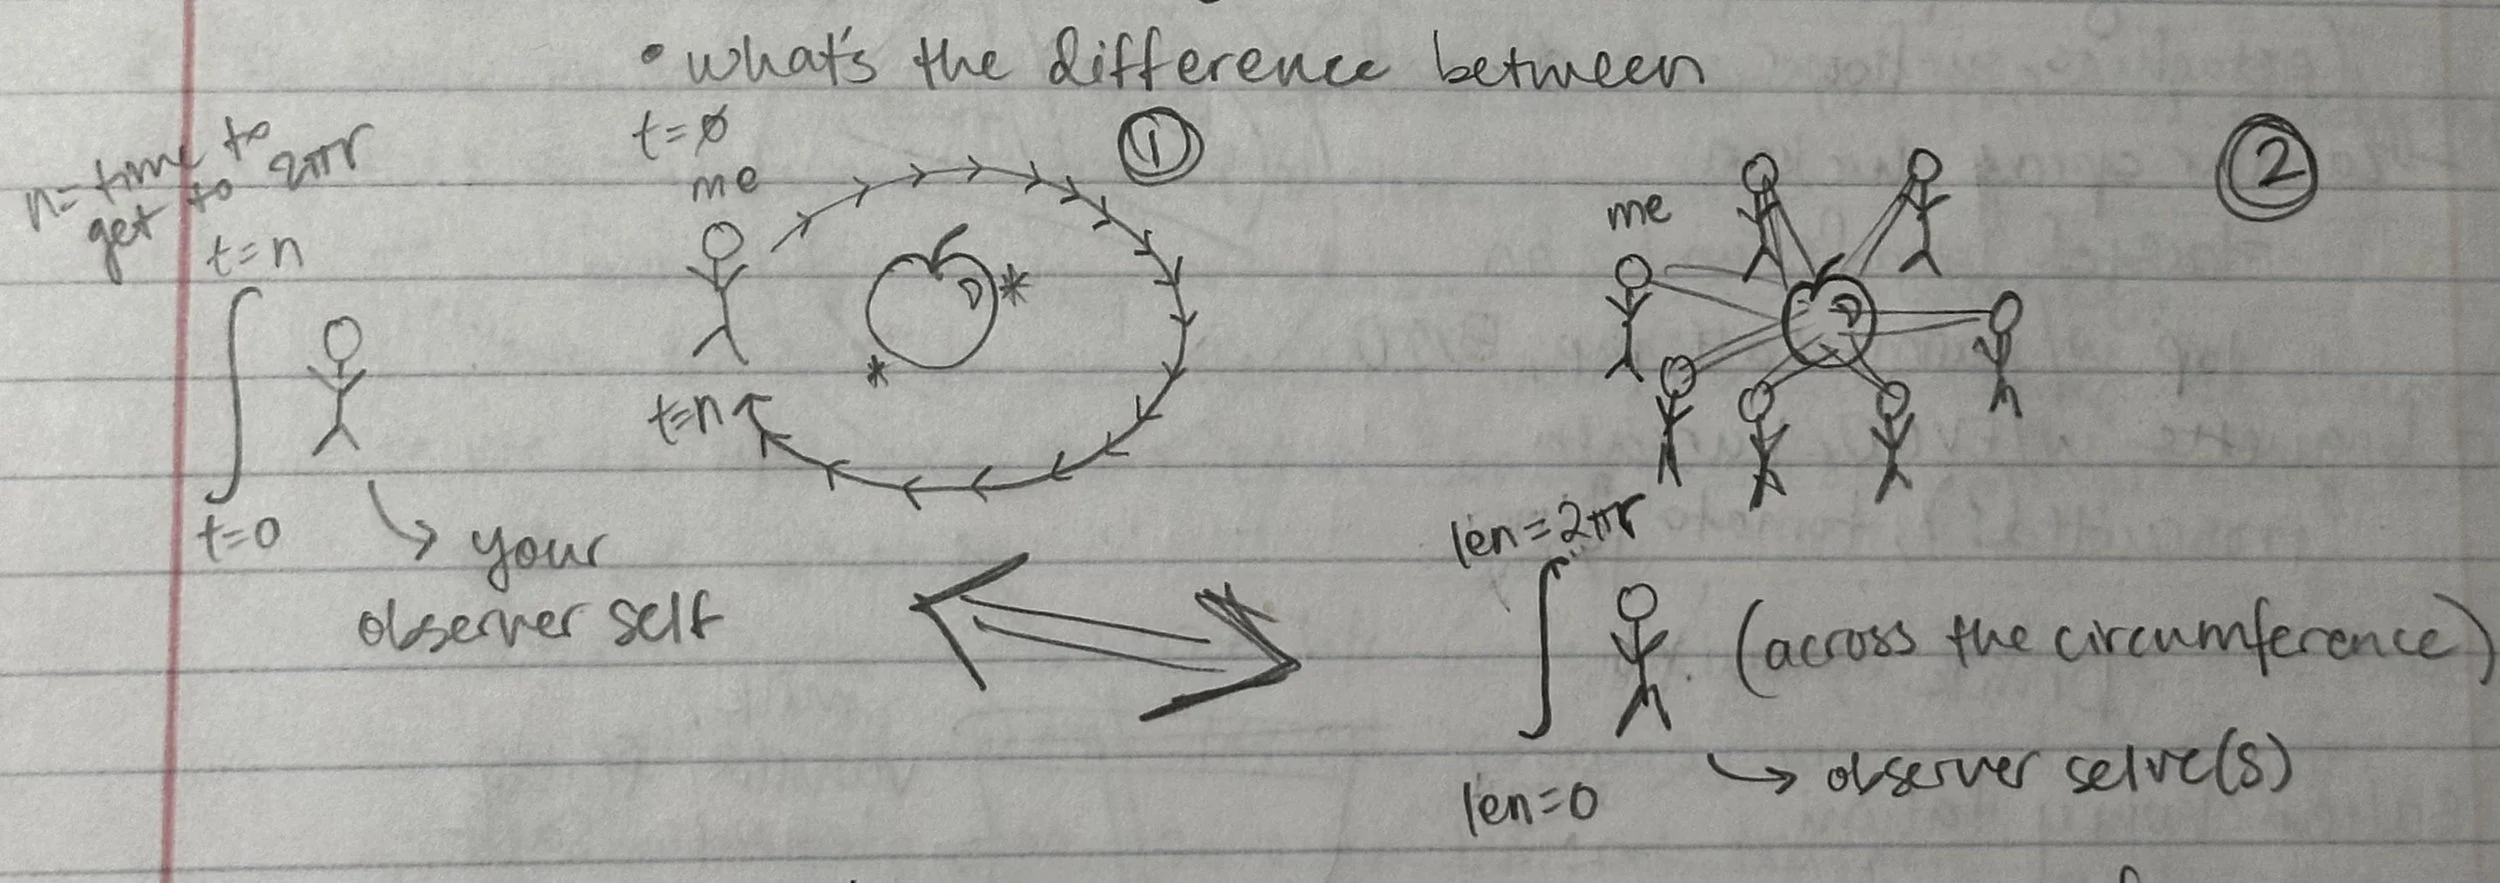 • what's the difference between
n = time to
get to 2πr
t=n
t=0
your
observer self
t=ø
me
①
*
*
t=n
me
②
len=2πr
(across the circumference)
len=0
observer selve(s)